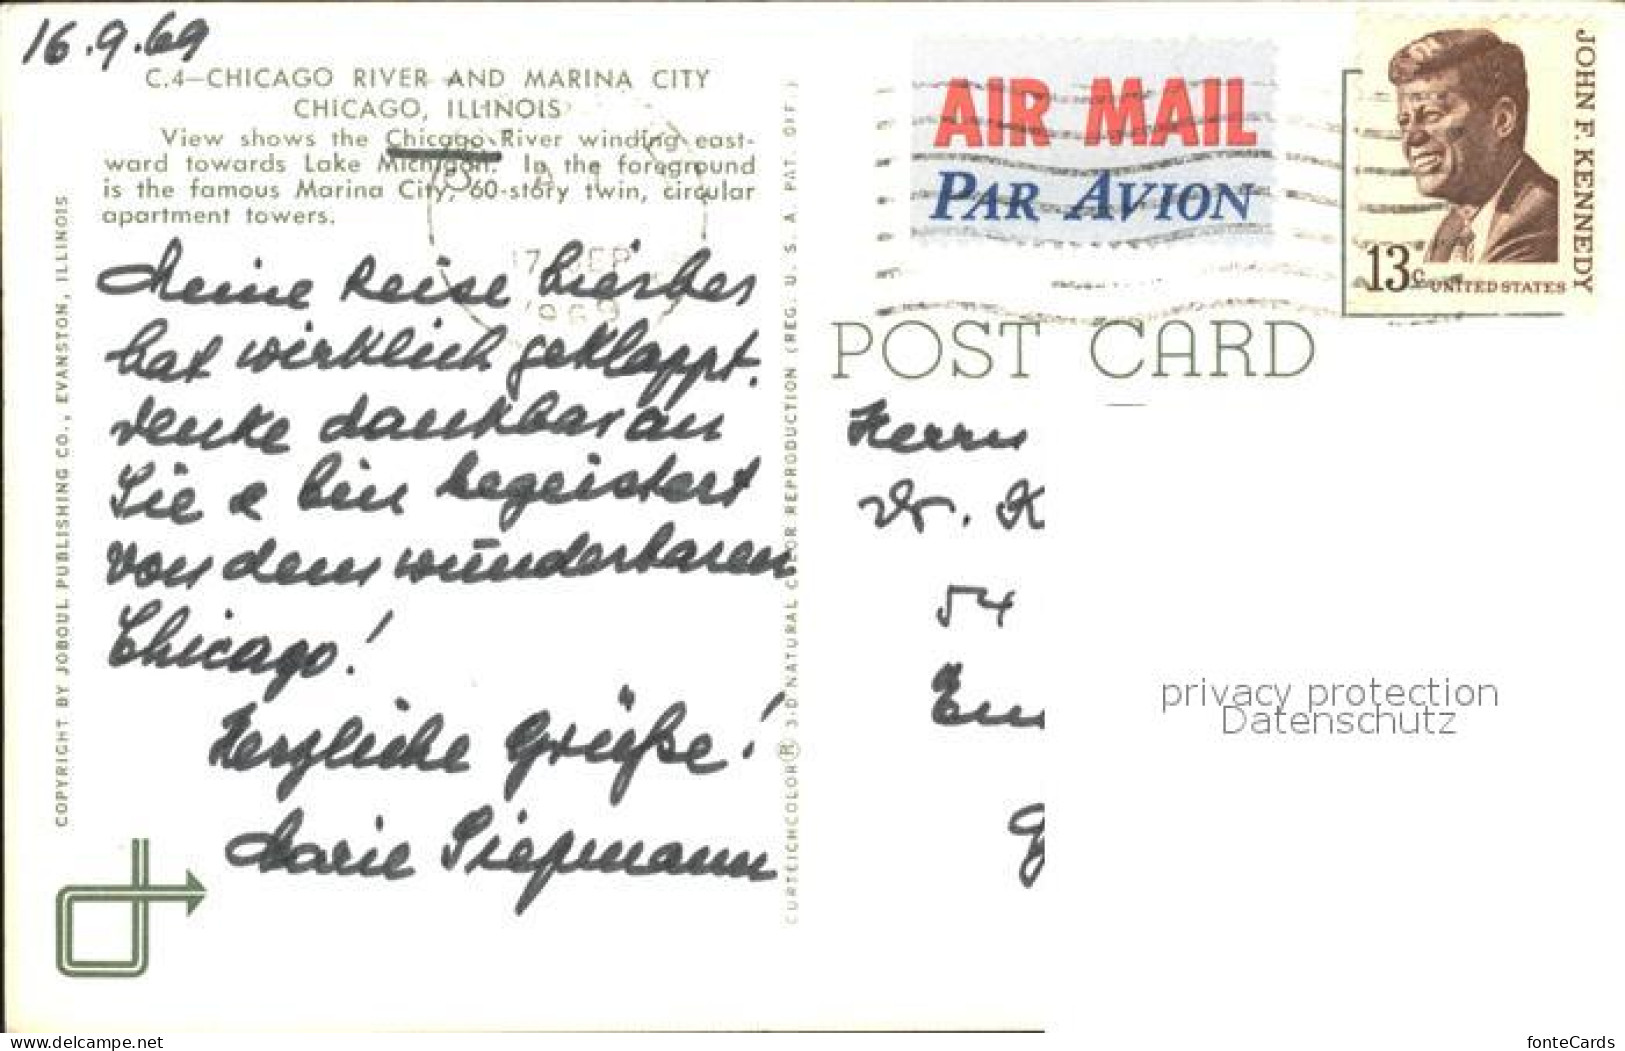 16.9.69
C.4—CHICAGO RIVER AND MARINA CITY
CHICAGO, ILLINOIS
View shows the Chicago River winding east-
ward towards Lake Michigan. In the foreground
is the famous Marina City, 60-story twin, circular
apartment towers.
Meine Reise hierher
hat wirklich geklappt.
Denke dankbar an
Sie & bin begeistert
von dem wunderbaren
Chicago!
Herzliche Grüße!
Marie Siepmann
COPYRIGHT BY JOBOUL PUBLISHING CO., EVANSTON, ILLINOIS
CURTEICHCOLOR ® 3-D NATURAL COLOR REPRODUCTION (REG. U. S. A. PAT. OFF.)
17 SEP
1969
AIR MAIL
PAR AVION
JOHN F. KENNEDY
13c UNITED STATES
POST CARD
Herrn
Dr. K
54
privacy protection
Datenschutz
www.delcampe.net
fonteCards